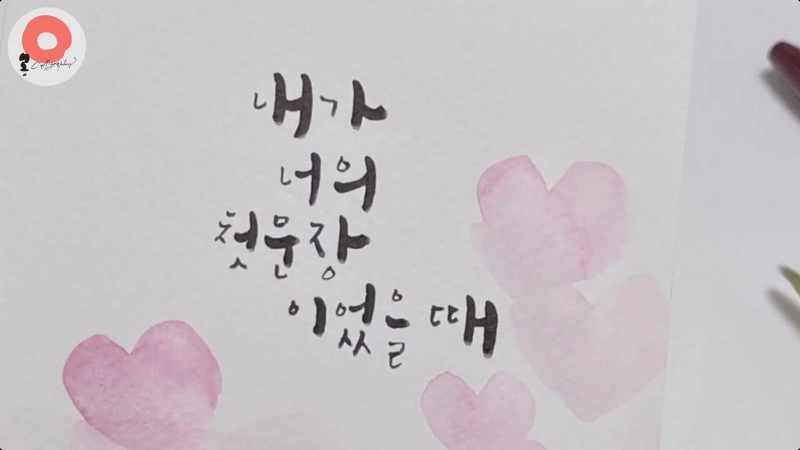 내가
너의
첫문장
이었을 때